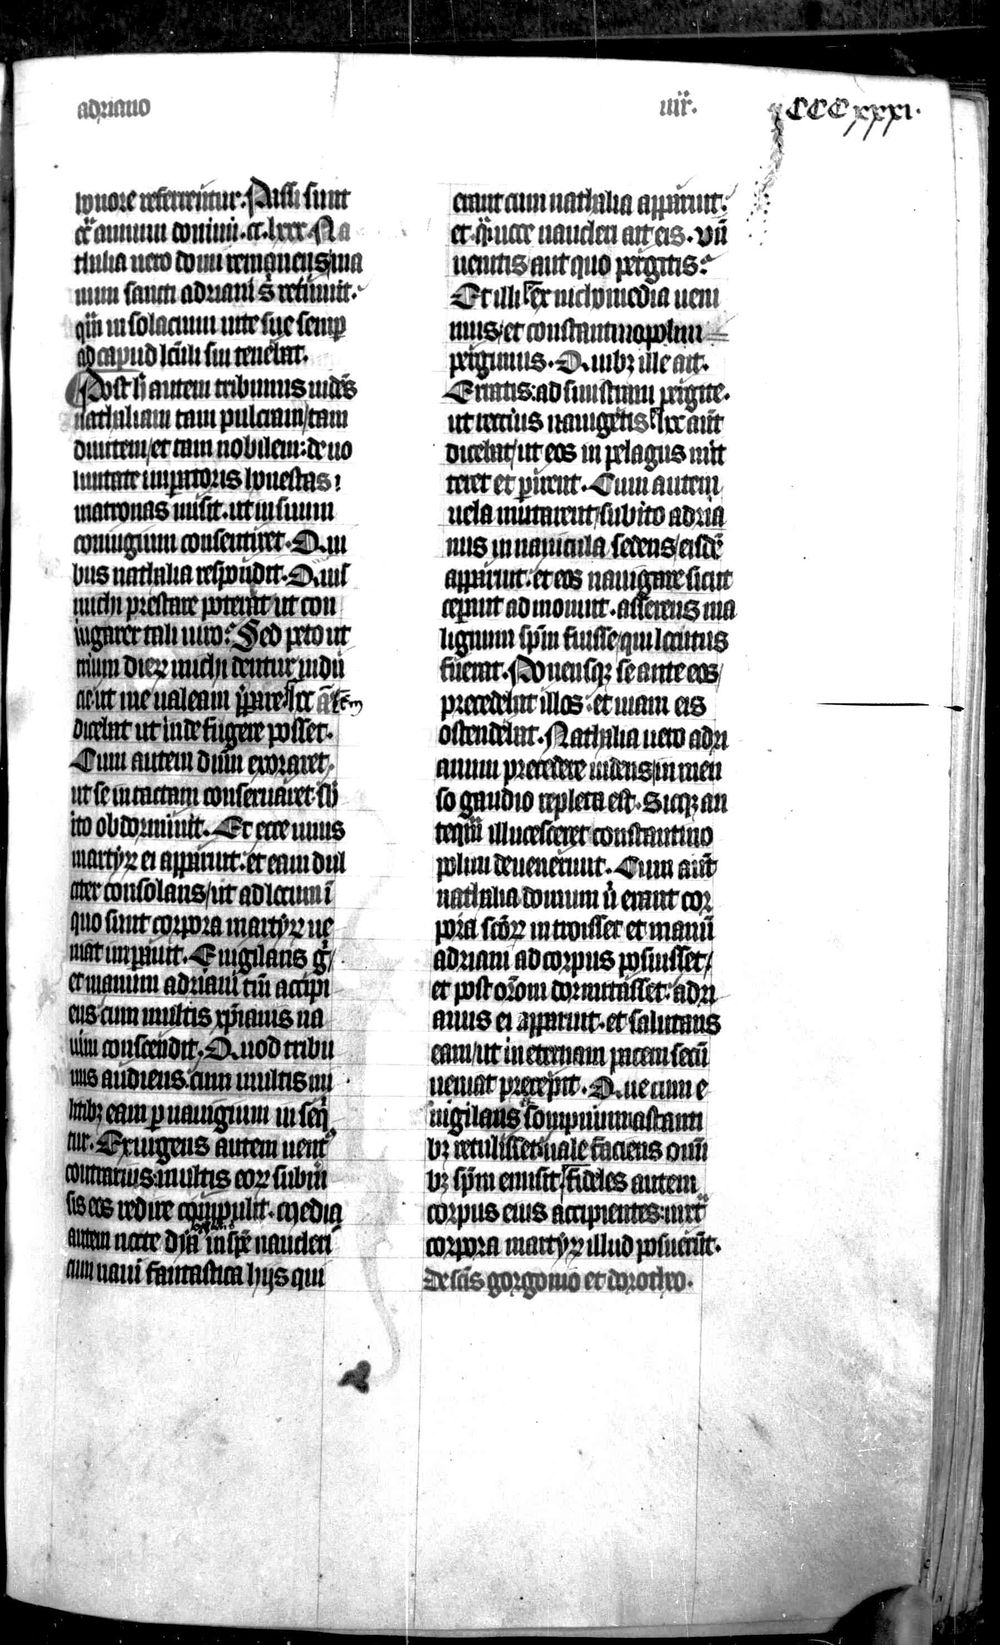 adriano
iiij.
CCCxxxi.
honore referrentur. Passi sunt
c̄ annum domini .cc.lxxx. Na
thalia uero domi remanens ma
num sancti adriani s̄ retinuit.
quā in solacium uite sue semp̄
ad capud lc̄uli sui tenebat.
Post h̄ autem tribunus uidēs
nathaliam tam pulcram/tam
diuitem/et tam nobilem: de uo
luntate imperatoris honestas
matronas misit. ut in suum
coniugium consentiret. Qui
bus nathalia respondit. Quis
michi prestare poterat ut con
iugarer tali uiro? Sed peto ut
trium dierꝝ michi dentur indu
cie ut me ualeam p̄pare. hec ā
dicebat ut inde fugere posset.
Cum autem dūm exoraret.
ut se intactam conseruaret sb̄
ito obdormiuit. Et ecce unus
martyrꝝ ei apparuit. et eam dul
citer consolans/ut ad locum ī
quo sunt corpora martyrꝝ ue
niat imperauit. Euigilans g̊/
et manum adriani tm̄ accipi
ens cum multis xp̄ianis na
uim conscendit. Quod tribu
nus audiens. cum multis mi
litibꝫ eam p nauigium insequi
tur. Exurgens autem uent᷒
contrarius: multis eorꝝ subm̄
sis eos redire compulit. Media
autem nocte dyā in spē naucleri
cum naui fantastica hijs qui
erant cum nathalia apparuit.
et qͣ uoce naucleri ait eis. Vn̄
uenitis aut quo pergitis?
Et illi ex nichomedia ueni
mus/et constantinopolim
pergimus. Quibꝫ ille ait.
Erratis: ad sinistram pergite.
ut rectius nauigetis. hec aūt
dicebat/ut eos in pelagus mit
teret et perirent. Cum autem
uela mutarent/subito adria
nus in nauicula sedens/eisdē
apparuit. et eos nauigare sicut
ceperunt admonuit. asserens ma
lignum sp̄m fuisse/qui locutus
fuerat. Ponensqꝫ se ante eos/
precedebat illos. et uiam eis
ostendebat. Nathalia uero adri
anum precedere uidens/in men
so gaudio repleta est. Sicqꝫ an
tequā illucesceret constantino
polim deuenerunt. Cum aūt
nathalia domum ubi erant cor
pora scōrꝝ introisset et manū
adriani ad corpus posuisset/
et post orōm dormitasset: adri
anus ei apparuit. et salutans
eam/ut in eternam pacem secū
ueniat precepit. Que cum e
uigilans sompnium astanti
bꝫ retulisset: uale faciens omī
bꝫ sp̄m emisit/fideles autem
corpus eius accipientes: iuxta
corpora martyrꝝ illud posuerūt.
De scīs gorgonio et dorotheo.